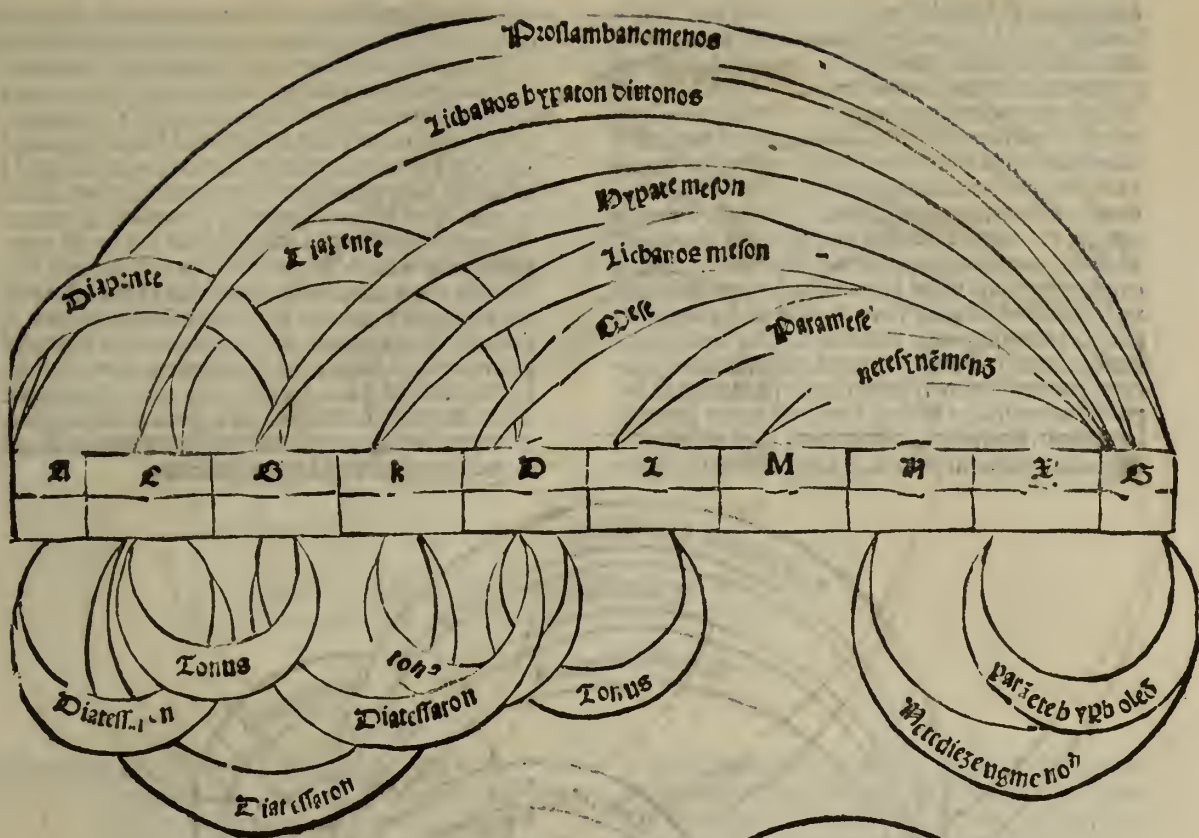 Proslambanomenos
Lichanos hypaton diatonos
Hypate meson
Diapente
Lichanos meson
Diapente
Mese
Paramese
netesynēmenꝫ
A C G k D L M N X B
Tonus
tonꝰ
Tonus
Diatessaron
Diatessaron
Diatessaron
parāetehyꝑboleꝫ
Netediezeugmenoн